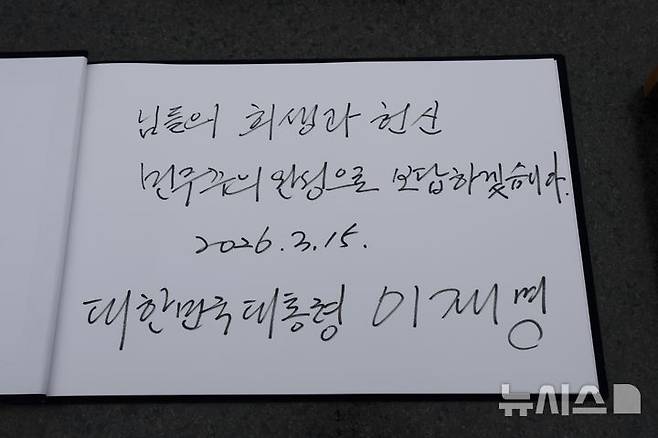 님들의 희생과 헌신
민주주의 완성으로 보답하겠습니다.
2026.3.15.
대한민국 대통령 이재명
뉴시스